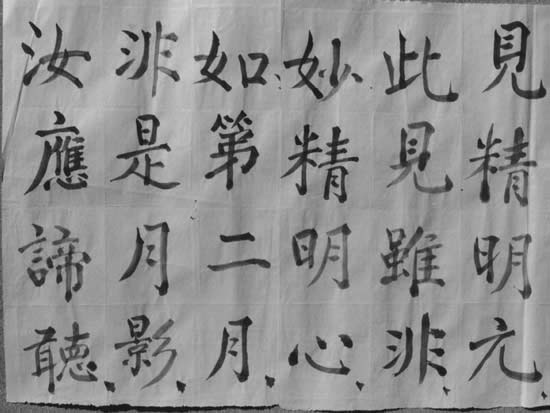 見精明元
此見雖非
妙精明心
如第二月
非是月影
汝應諦聽